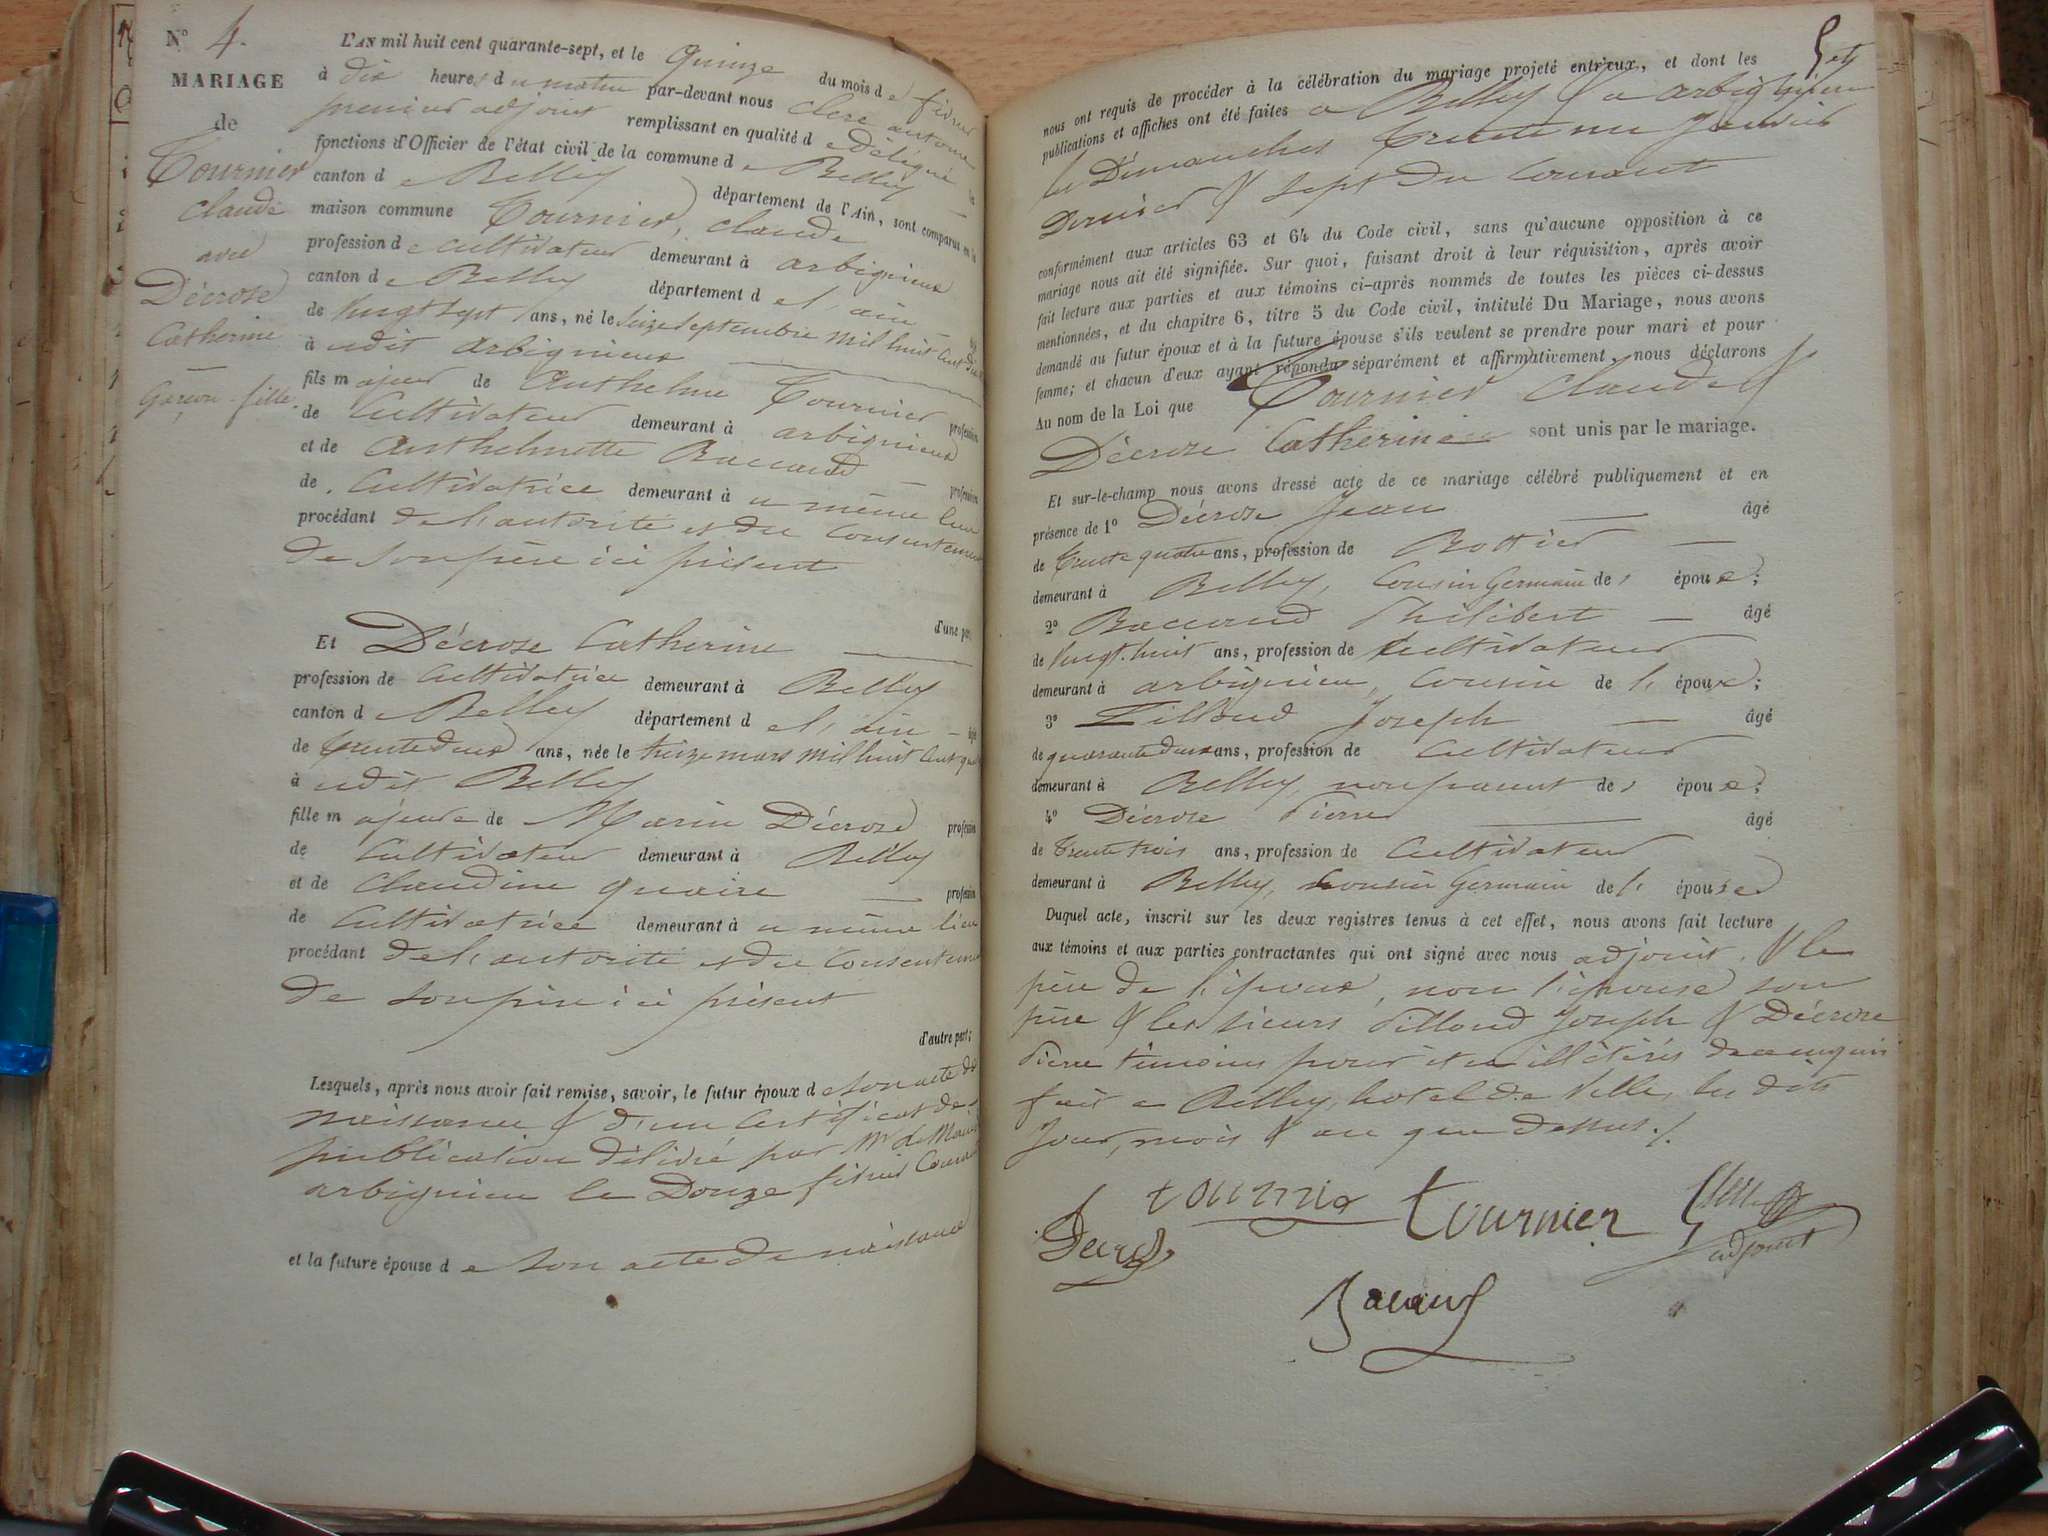 N° 4.
MARIAGE
de
Tournier
Claude
avec
Décrose
Catherine
Garçon - fille
L'AN mil huit cent quarante-sept, et le quinze du mois de février
à dix heures du matin par-devant nous Clerc antoine
premier adjoint remplissant en qualité de délégué les
fonctions d'Officier de l'état civil de la commune de Belley
canton de Belley département de l'Ain, sont comparus en la
maison commune Tournier, Claude
profession de cultivateur demeurant à arbignieux
canton de Belley département de l'ain
de vingt sept ans, né le seize septembre mil huit cent dix
à udit arbignieux
fils majeur de Anthelme Tournier profession
de Cultivateur demeurant à arbignieux
et de Anthelmette Baccard profession
de Cultivatrice demeurant à u même lieu
procédant de l'autorité et du Consentement
de son père ici présent
d'une part,
Et Décrose Catherine
profession de Cultivatrice demeurant à Belley
canton de Belley département de l'ain âgée
de trente deux ans, née le treize mars mil huit cent
à udit Belley
fille majeure de Marin Décrose profession
de Cultivateur demeurant à Belley
et de Claudine Quaire profession
de Cultivatrice demeurant à u même lieu
procédant de l'autorité et du Consentement
de son père ici présent
d'autre part;
Lesquels, après nous avoir fait remise, savoir, le futur époux de son acte de
naissance & d'un certificat de
publication délivré par Mr le Maire
arbignieu le Douze février Courant
et la future épouse de son acte de naissance
5
nous ont requis de procéder à la célébration du mariage projeté entr'eux, et dont les
publications et affiches ont été faites a Belley & a arbignieu
les Dimanches trente un Janvier
Dernier & sept du Courant
conformément aux articles 63 et 64 du Code civil, sans qu'aucune opposition à ce
mariage nous ait été signifiée. Sur quoi, faisant droit à leur réquisition, après avoir
fait lecture aux parties et aux témoins ci-après nommés de toutes les pièces ci-dessus
mentionnées, et du chapitre 6, titre 5 du Code civil, intitulé Du Mariage, nous avons
demandé au futur époux et à la future épouse s'ils veulent se prendre pour mari et pour
femme; et chacun d'eux ayant répondu séparément et affirmativement, nous déclarons
Au nom de la Loi que Tournier Claude &
Décroze Catherine sont unis par le mariage.
Et sur-le-champ nous avons dressé acte de ce mariage célébré publiquement et en
présence de 1° Décrose Jean âgé
de trente quatre ans, profession de Bottier
demeurant à Belley, Cousin Germain de l' épouse;
2° Baccard Philibert âgé
de vingt-huit ans, profession de Cultivateur
demeurant à arbignieu, Cousin de l' époux;
3° Pilloud Joseph âgé
de quarante deux ans, profession de Cultivateur
demeurant à Belley, non parent de l' épouse;
4° Décrose Pierre âgé
de trente trois ans, profession de Cultivateur
demeurant à Belley, Cousin Germain de l' épouse
Duquel acte, inscrit sur les deux registres tenus à cet effet, nous avons fait lecture
aux témoins et aux parties contractantes qui ont signé avec nous adjoint, & le
père de l'époux, non l'épouse son
père & les sieurs Pilloud Joseph & Décrose
Pierre témoins pour être illétérés de ce enquis
fait a Belley, hotel de Ville, les dits
jour, mois & an que dessus./.
tournie tournier
Decroz adjoint